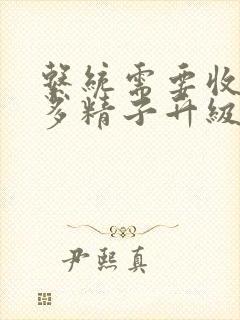 繫統需要收
多精子升級
尹熙真